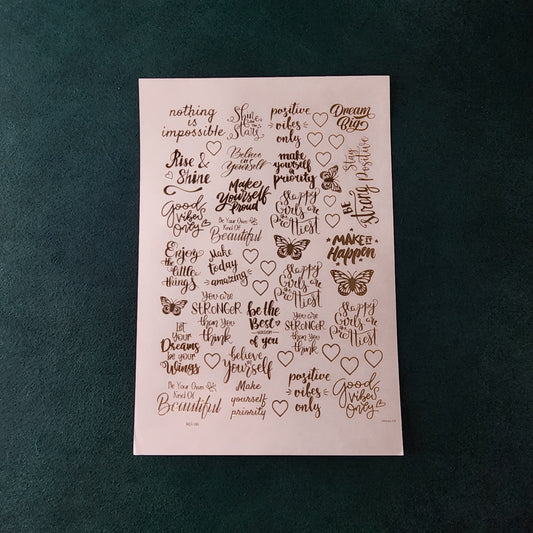 nothing
is
impossible
Shine
like the
Stars
positive
vibes
only
Dream
Big
Rise &
Shine
Believe
in
Yourself
make
yourself
a
priority
Stay
Positive
BE
Strong
Good
Vibes
Only
Make
Yourself
Proud
Happy
Girls are
the
Prettiest
Be Your Own
Kind Of
Beautiful
MAKE IT
Happen
Enjoy
the little
things
Make
today
amazing
Happy
Girls are
the
Prettiest
You are
STRONGER
than you
think
be the
Best
VERSION
of you
You are
STRONGER
than you
think
Happy
Girls are
the
Prettiest
Let
Your
Dreams
be your
Wings
believe
in
Yourself
Be Your Own
Kind Of
Beautiful
Make
yourself
priority
positive
vibes
only
Good
Vibes
Only